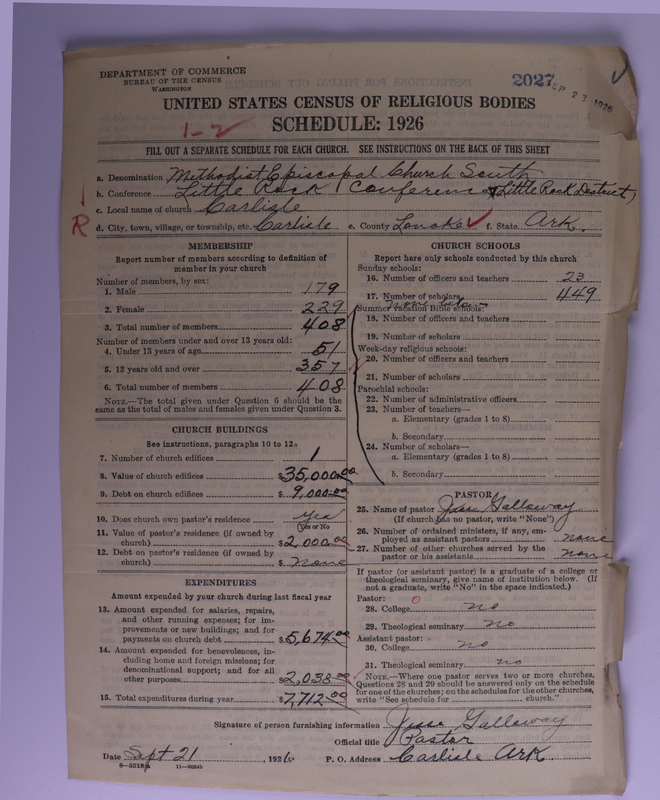 DEPARTMENT OF COMMERCE
BUREAU OF THE CENSUS
WASHINGTON
2027
SEP 23 1926
UNITED STATES CENSUS OF RELIGIOUS BODIES
1-2
SCHEDULE: 1926
FILL OUT A SEPARATE SCHEDULE FOR EACH CHURCH. SEE INSTRUCTIONS ON THE BACK OF THIS SHEET
a. Denomination Methodist Episcopal Church South
b. Conference Little Rock Conference (Little Rock District)
c. Local name of church Carlisle
R
d. City, town, village, or township, etc. Carlisle e. County Lonoke f. State Ark.
MEMBERSHIP
Report number of members according to definition of
member in your church
Number of members, by sex:
1. Male 179
2. Female 229
3. Total number of members 408
Number of members under and over 13 years old:
4. Under 13 years of age 51
5. 13 years old and over 357
6. Total number of members 408
NOTE.—The total given under Question 6 should be the
same as the total of males and females given under Question 3.
CHURCH BUILDINGS
See instructions, paragraphs 10 to 12
7. Number of church edifices 1
8. Value of church edifices $35,000.00
9. Debt on church edifices $9,000.00
10. Does church own pastor's residence Yes
(Yes or No)
11. Value of pastor's residence (if owned by
church) $2,000.00
12. Debt on pastor's residence (if owned by
church) $ None
EXPENDITURES
Amount expended by your church during last fiscal year
13. Amount expended for salaries, repairs,
and other running expenses; for im-
provements or new buildings; and for
payments on church debt $5,674.00
14. Amount expended for benevolences, in-
cluding home and foreign missions; for
denominational support; and for all
other purposes $2,038.00
15. Total expenditures during year $7,712.00
CHURCH SCHOOLS
Report here only schools conducted by this church
Sunday schools:
16. Number of officers and teachers 23
17. Number of scholars 449
none below
Summer vacation Bible schools:
18. Number of officers and teachers
19. Number of scholars
Week-day religious schools:
20. Number of officers and teachers
21. Number of scholars
Parochial schools:
22. Number of administrative officers
23. Number of teachers—
a. Elementary (grades 1 to 8)
b. Secondary
24. Number of scholars—
a. Elementary (grades 1 to 8)
b. Secondary
PASTOR
25. Name of pastor Jesse Galloway
(If church has no pastor, write "None")
26. Number of ordained ministers, if any, em-
ployed as assistant pastors none
27. Number of other churches served by the
pastor or his assistants none
If pastor (or assistant pastor) is a graduate of a college or
theological seminary, give name of institution below. (If
not a graduate, write "No" in the space indicated.)
Pastor: 0
28. College no
29. Theological seminary no
Assistant pastor:
30. College no
31. Theological seminary no
NOTE.—Where one pastor serves two or more churches,
Questions 28 and 29 should be answered only on the schedule
for one of the churches; on the schedules for the other churches,
write "See schedule for church."
Signature of person furnishing information Jesse Galloway
Official title Pastor
Date Sept 21, 1926 P. O. Address Carlisle Ark.